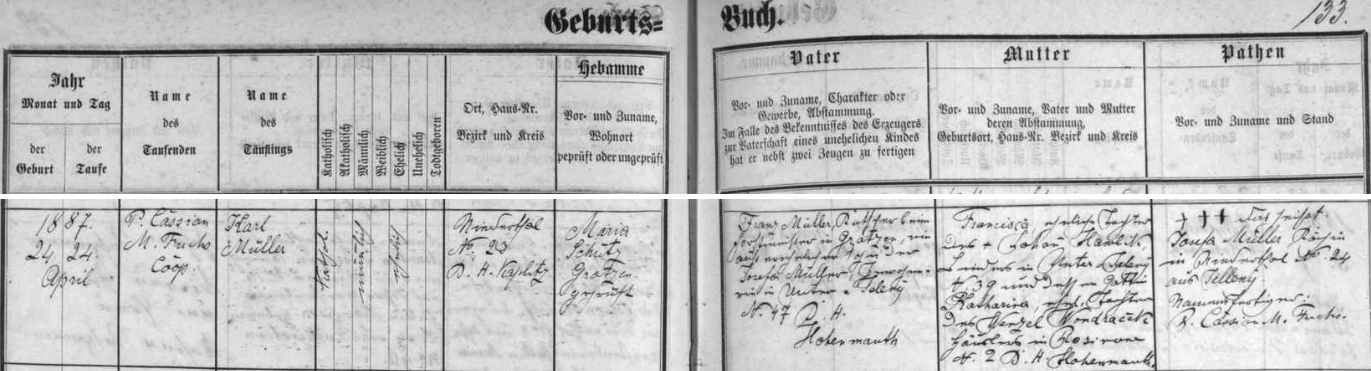 Geburts=
Buch.
133.
Jahr
Monat und Tag
der Geburt
der Taufe
Name
des
Taufenden
Name
des
Täuflings
Katholisch
Akatholisch
Männlich
Weiblich
Ehelich
Unehelich
Todtgeboren
Ort, Haus-Nr.
Bezirk und Kreis
Hebamme
Vor- und Zuname,
Wohnort
geprüft oder ungeprüft
Vater
Vor- und Zuname, Charakter oder
Gewerbe, Abstammung.
Im Falle des Bekenntnisses des Erzeugers
zur Vaterschaft eines unehelichen Kindes
hat er nebst zwei Zeugen zu fertigen
Mutter
Vor- und Zuname, Vater und Mutter
deren Abstammung,
Geburtsort, Haus-Nr. Bezirk und Kreis
Pathen
Vor- und Zuname und Stand
1887.
24. 24.
April
P. Cassian
M. Fuchs
Coop.
Karl
Müller
Kathol.
männlich
ehelich
Niederthal
Nr. 23
B. H. Kaplitz
Maria
Schütz
Gratzen
geprüft
Franz Müller, Kutscher beim
Forstmeister in Gratzen, ein
Sohn der
Josefa Müller
in Unter
N. 47 B. H.
Hohenmauth
Francisca, eheliche Tochter
des † Johan
in Unter
N. 39 und dessen Gattin
Katharina ehel. Tochter
des Wenzel Wondraček
Häuslers in
N. 2 B. H. Hohenmauth.
††† das heißt:
Josefa Müller Köchin
in Niederthal N. 24
aus
Namensfertiger
P. Cassian M. Fuchs.